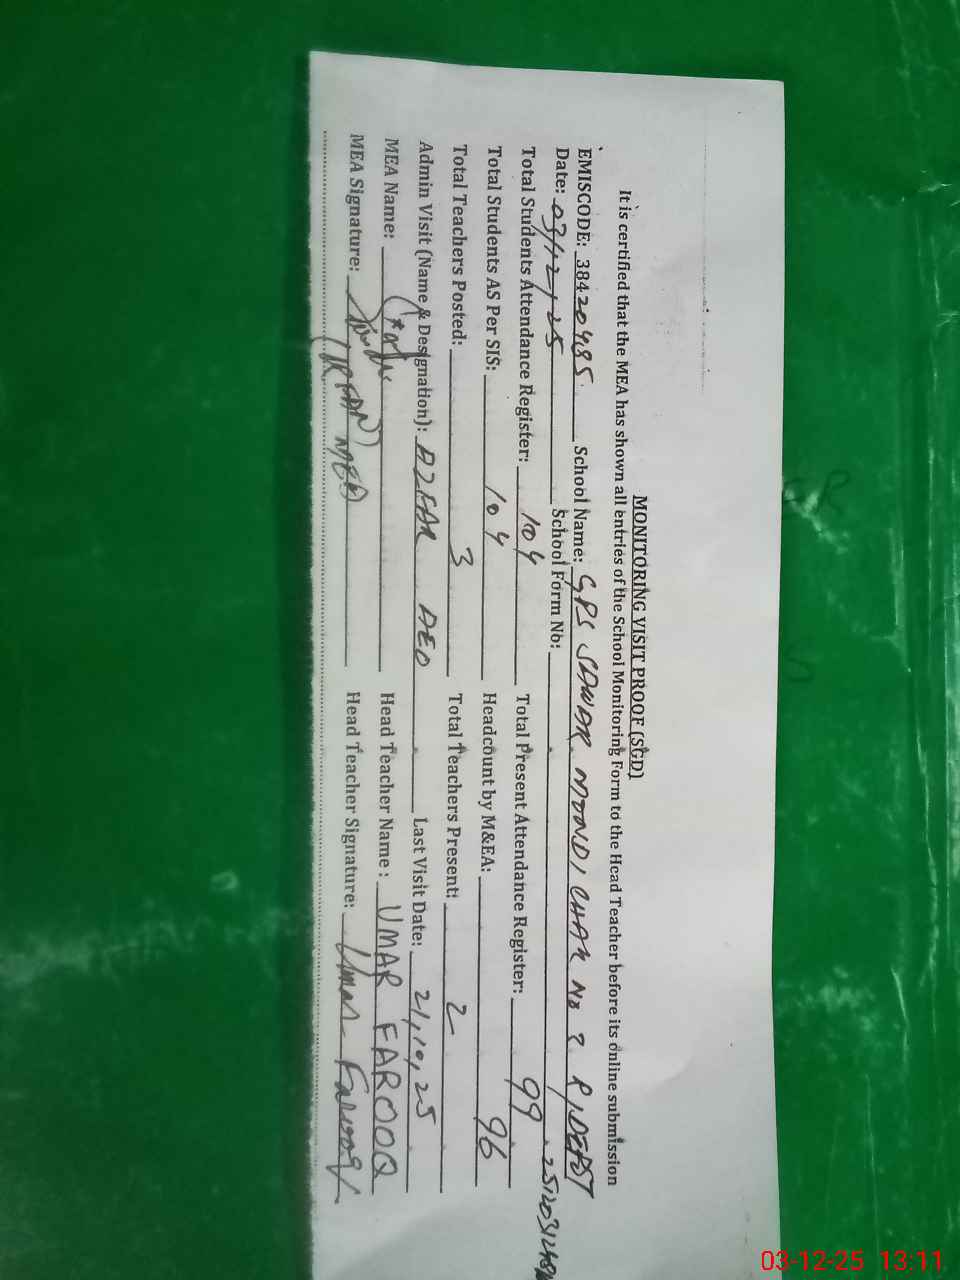 MONITORING VISIT PROOF (SGD)
It is certified that the MEA has shown all entries of the School Monitoring Form to the Head Teacher before its online submission
EMISCODE: 38420485 School Name: GPS SAWAR MOONDI CHAK No 2 R/DEPST
Date: 03/12/25 School Form No:
Total Students Attendance Register: 104 Total Present Attendance Register: 99
Total Students AS Per SIS: 104 Headcount by M&EA: 96
Total Teachers Posted: 3 Total Teachers Present: 2
Admin Visit (Name & Designation): AZFAR AEO Last Visit Date: 21,10,25
MEA Name: Head Teacher Name: UMAR FAROOQ
MEA Signature: (IRFAN) MEA Head Teacher Signature: Umar Farooq
03-12-25 13:11